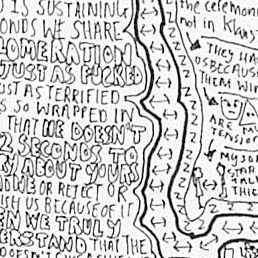 IS SUSTAINING
ONDS WE SHARE
LOMERATION
JUST AS FUCKED
UST AS TERRIFIED
S SO WRAPPED IN
THAT HE DOESN'T
2 SECONDS TO
ABOUT YOURS
OR REJECT OR
ISH US BECAUSE OF IT
EN WE TRULY
ERSTAND THAT THE
the ceremon
not in Klans
THEY HA
US BECAU
THERE WI
ARE MU
TENSION
MY JO
STAR
THIC